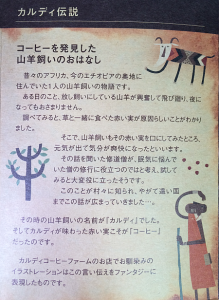 カルディ伝説
コーヒーを発見した
山羊飼いのおはなし
昔々のアフリカ、今のエチオピアの奥地に
住んでいた1人の山羊飼いの物語です。
ある日のこと、放し飼いにしている山羊が興奮して飛び廻り、夜に
なってもおさまりません。
調べてみると、草と一緒に食べた赤い実が原因らしいことがわかり
ました。
そこで、山羊飼いもその赤い実を口にしてみたところ、
元気が出て気分が爽快になったといいます。
その話を聞いた修道僧が、眠気に悩んで
いた僧の修行に役立つのではと考え、試して
みると大変役に立ったそうです。
このことが村々に知られ、やがて遠い国
までこの話が広まっていきました…。
その時の山羊飼いの名前が「カルディ」でした。
そしてカルディが味わった赤い実こそが「コーヒー」
だったのです。
カルディコーヒーファームのお店でお馴染みの
イラストレーションはこの言い伝えをファンタジーに
表現したものです。